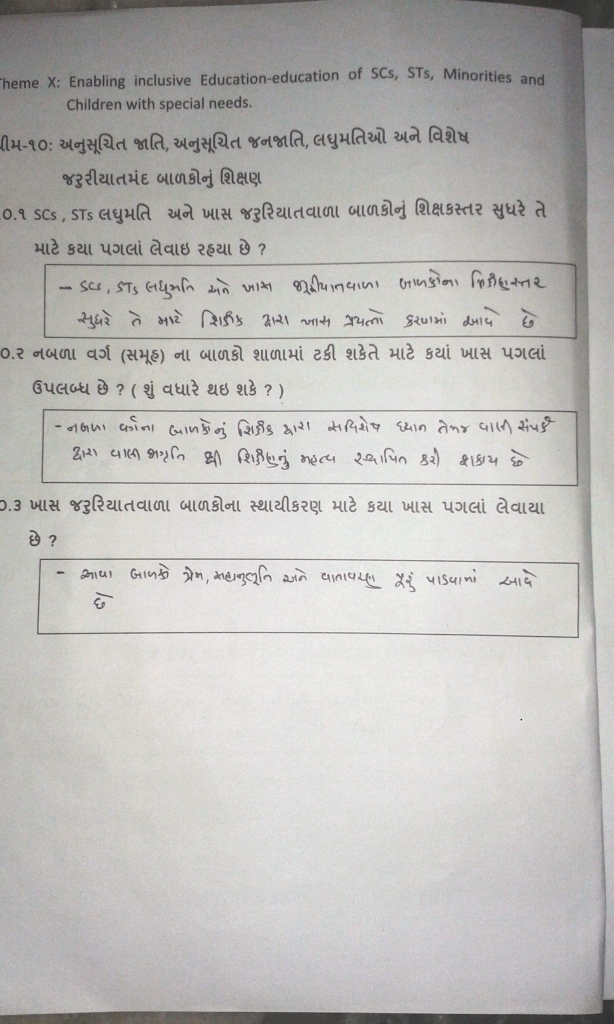 heme X: Enabling inclusive Education-education of SCs, STs, Minorities and
Children with special needs.
ીમ-૧૦: અનુસૂચિત જાતિ, અનુસૂચિત જનજાતિ, લઘુમતિઓ અને વિશેષ
જરુરીયાતમંદ બાળકોનું શિક્ષણ
૦.૧ SCs , STs લઘુમતિ અને ખાસ જરુરિયાતવાળા બાળકોનું શિક્ષકસ્તર સુધરે તે
માટે કયા પગલાં લેવાઇ રહયા છે ?
– SCs, STs લઘુમતિ અને ખાસ જરૂરીયાતવાળા બાળકોના શિક્ષણસ્તર
સુધરે તે માટે શિક્ષક દ્વારા ખાસ પ્રયત્નો કરવામાં આવે છે
૦.૨ નબળા વર્ગ (સમૂહ) ના બાળકો શાળામાં ટકી શકેતે માટે કયાં ખાસ પગલાં
ઉપલબ્ધ છે ? ( શું વધારે થઇ શકે ? )
- નબળા વર્ગના બાળકોનું શિક્ષક દ્વારા સવિશેષ ધ્યાન તેમજ વાલી સંપર્ક
દ્વારા વાલી જાગૃતિ થી શિક્ષણનું મહત્વ સ્થાપિત કરી શકાય છે
૦.૩ ખાસ જરુરિયાતવાળા બાળકોના સ્થાયીકરણ માટે કયા ખાસ પગલાં લેવાયા
છે ?
- આવા બાળકો પ્રેમ, સહાનુભૂતિ અને વાતાવરણ પૂરું પાડવામાં આવે
છે